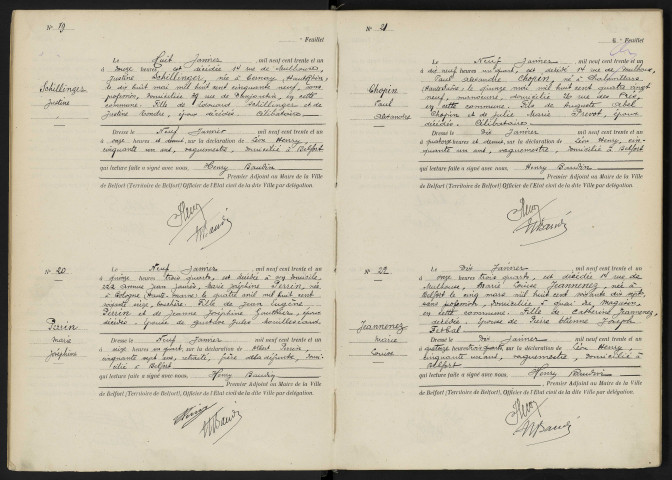 N° 19
Feuillet
Schillinger
Justine
Le Huit Janvier mil neuf cent trente et un
à douze heures est décédée 14 rue de Mulhouse,
Justine Schillinger, née à Cernay (Haut-Rhin),
le dix huit mai mil huit cent cinquante neuf, sans
profession, domiciliée en cette
commune. Fille de Edouard Schillinger et de
Justine époux décédés. Célibataire
Dressé le Neuf Janvier mil neuf cent trente et un
à onze heures et demie, sur la déclaration de Léon Henry,
cinquante un ans, vaguemestre, domicilié à Belfort
qui lecture faite a signé avec nous, Henry Baudin
Premier Adjoint au Maire de la Ville
de Belfort (Territoire de Belfort) Officier de l'Etat civil de la dite Ville par délégation.
N° 20
Perrin
Marie
Joséphine
Le Neuf Janvier mil neuf cent trente et un
à quinze heures trois quarts, est décédée à son domicile,
rue Jean Jaurès, Marie Joséphine Perrin, née
à Bologne (Haute-Marne) le quatre mil huit cent
soixante seize, Fille de Jean Eugène
Perrin et de Jeanne Joséphine Gauthier, époux
décédés. Epouse de Gustave Jules
Dressé le Neuf Janvier mil neuf cent trente et un
à seize heures un quart, sur la déclaration de Albert Perrin,
cinquante sept ans, retraité, frère de la défunte, domi-
cilié à Belfort
qui lecture faite a signé avec nous, Henry Baudin
Premier Adjoint au Maire de la Ville
de Belfort (Territoire de Belfort) Officier de l'Etat civil de la dite Ville par délégation.
N° 21
Feuillet
Chopin
Paul
Alexandre
Le Neuf Janvier mil neuf cent trente et un
à dix neuf heures un quart, est décédé 14 rue de Mulhouse,
Paul Alexandre Chopin, né à
(Haute-Saône) le quinze mai mil huit cent quatre vingt
neuf, manœuvre, domicilié
en cette commune. Fils de Auguste Abel
Chopin et de Julie Marie Prevot, époux
décédés. Célibataire
Dressé le Dix Janvier mil neuf cent trente et un
à quatorze heures et demie, sur la déclaration de Léon Henry, cin-
quante un ans, vaguemestre, domicilié à Belfort
qui lecture faite a signé avec nous, Henry Baudin
Premier Adjoint au Maire de la Ville
de Belfort (Territoire de Belfort) Officier de l'Etat civil de la dite Ville par délégation.
N° 22
Jeannenez
Marie
Louise
Le Dix Janvier mil neuf cent trente et un
à onze heures trois quarts, est décédée 14 rue de
Mulhouse, Marie Louise Jeannenez, née à
Belfort le cinq mars mil huit cent soixante dix sept,
sans profession, domiciliée
en cette commune. Fille de Catherine Jeannenez,
décédée. Epouse de Pierre Etienne Joseph
Dressé le Dix Janvier mil neuf cent trente et un
à quatorze heures trois quarts, sur la déclaration de Léon Henry,
cinquante un ans, vaguemestre, domicilié à
Belfort
qui lecture faite a signé avec nous, Henry Baudin
Premier Adjoint au Maire de la Ville
de Belfort (Territoire de Belfort) Officier de l'Etat civil de la dite Ville par délégation.